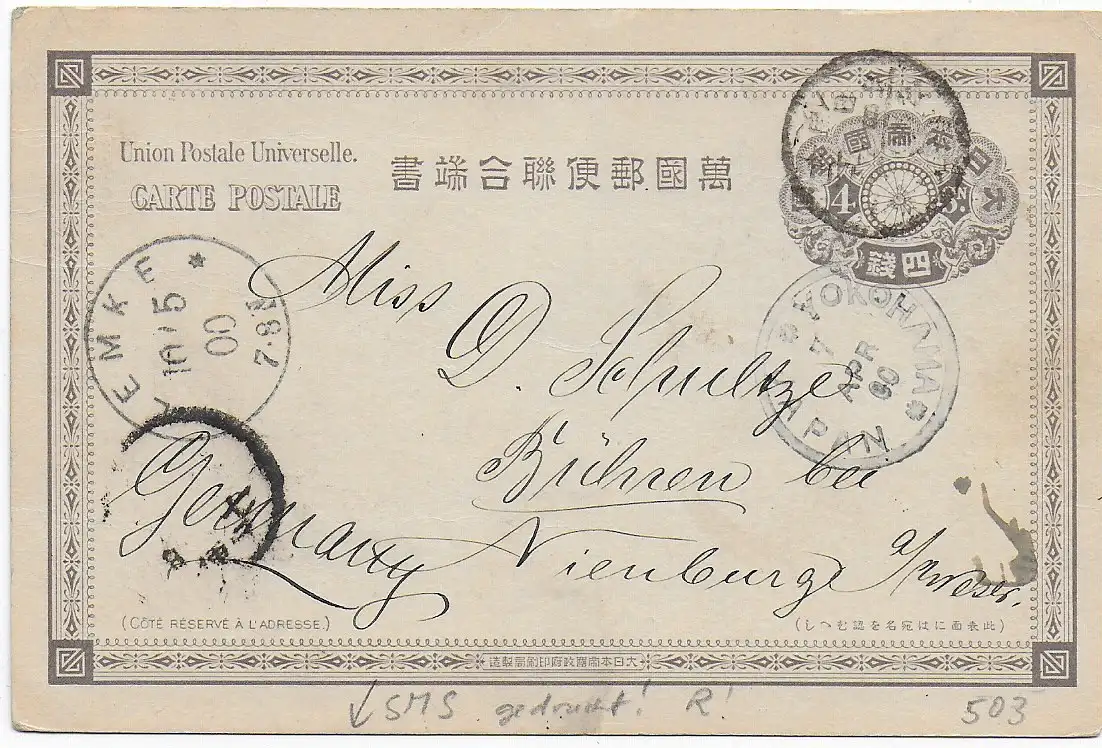 Union Postale Universelle.
CARTE POSTALE
書端合聯便郵國萬
大日本帝國
4
錢四
LEMKE
10/5
00
7-8N
YOKOHAMA
7
APR
00
JAPAN
Miss
D. Schultze
Bühren bei
Nienburg a/Weser.
Germany
(CÔTÉ RÉSERVÉ À L'ADRESSE.)
(しへむ認を名宛はに面表此)
造製局刷印府政國帝本日大
↓ SMS gedruckt! R! 503